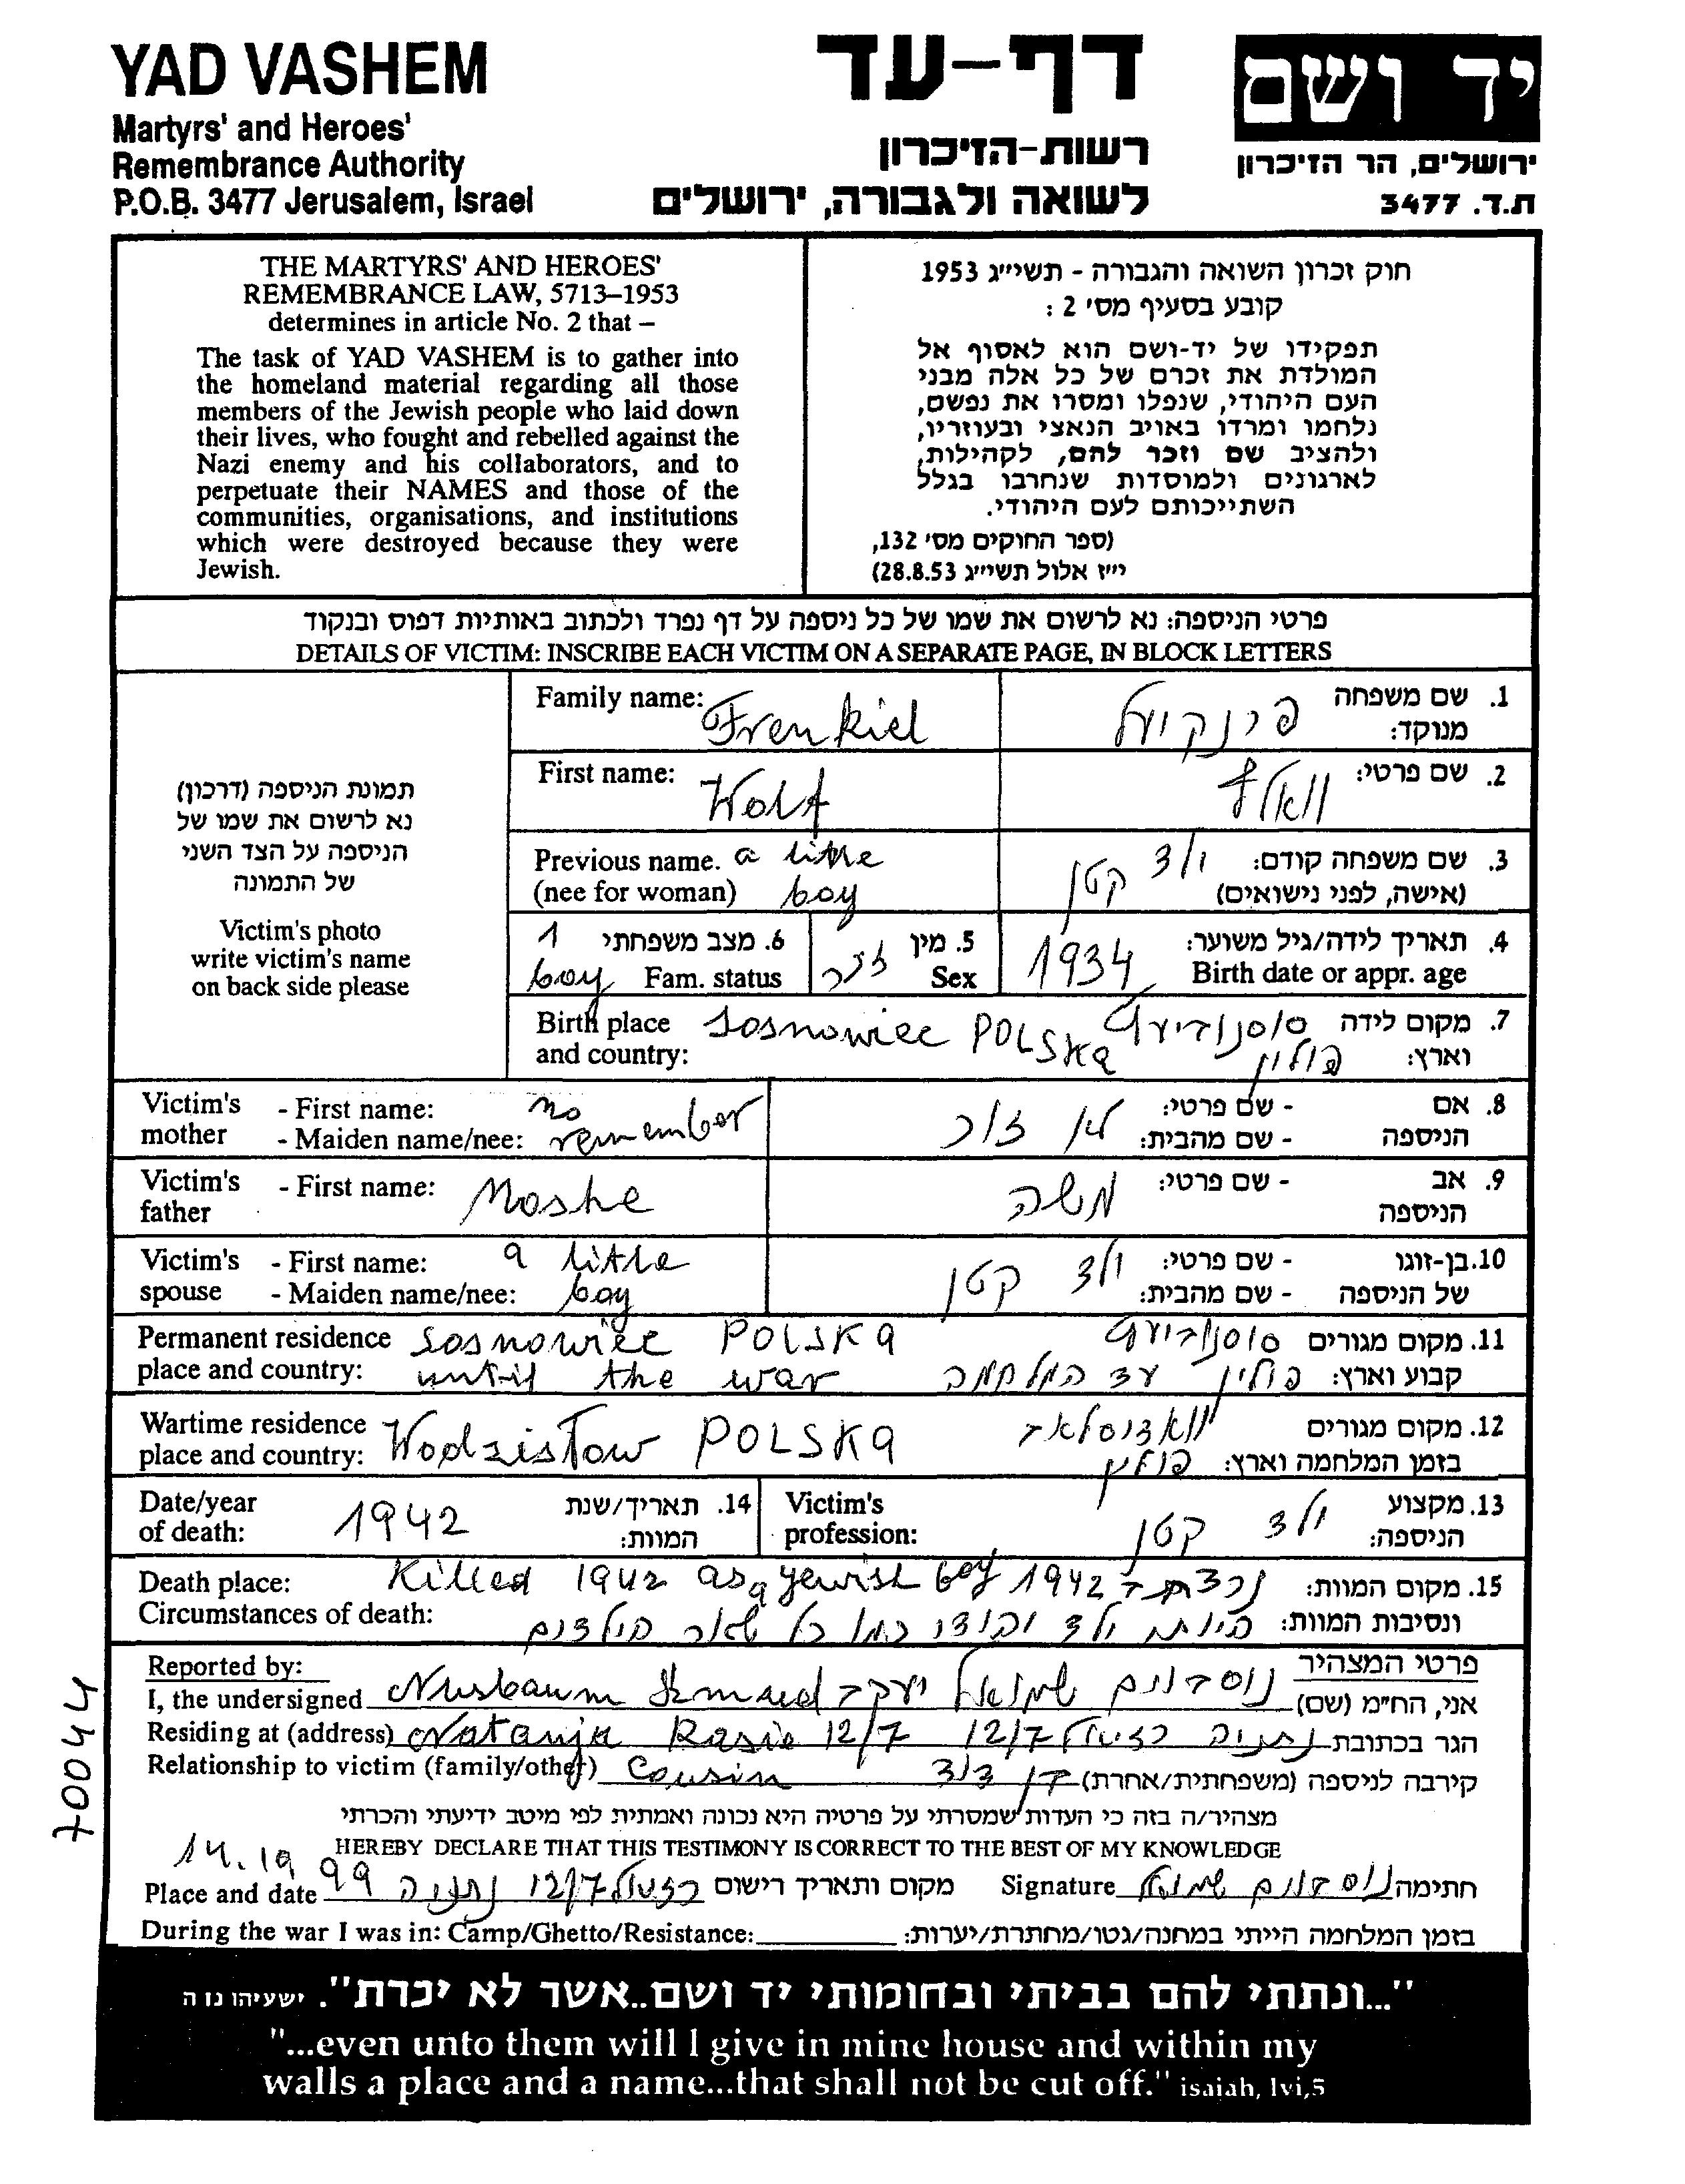 YAD VASHEM
Martyrs' and Heroes'
Remembrance Authority
P.O.B. 3477 Jerusalem, Israel
דף-עד
רשות-הזיכרון
לשואה ולגבורה, ירושלים
יד ושם
ירושלים, הר הזיכרון
ת.ד. 3477
THE MARTYRS' AND HEROES'
REMEMBRANCE LAW, 5713–1953
determines in article No. 2 that –
The task of YAD VASHEM is to gather into
the homeland material regarding all those
members of the Jewish people who laid down
their lives, who fought and rebelled against the
Nazi enemy and his collaborators, and to
perpetuate their NAMES and those of the
communities, organisations, and institutions
which were destroyed because they were
Jewish.
חוק זכרון השואה והגבורה - תשי״ג 1953
קובע בסעיף מס' 2 :
תפקידו של יד-ושם הוא לאסוף אל
המולדת את זכרם של כל אלה מבני
העם היהודי, שנפלו ומסרו את נפשם,
נלחמו ומרדו באויב הנאצי ובעוזריו,
ולהציב שם וזכר להם, לקהילות,
לארגונים ולמוסדות שנחרבו בגלל
השתייכותם לעם היהודי.
(ספר החוקים מס' 132,
י״ז אלול תשי״ג 28.8.53)
פרטי הניספה: נא לרשום את שמו של כל ניספה על דף נפרד ולכתוב באותיות דפוס ובנקוד
DETAILS OF VICTIM: INSCRIBE EACH VICTIM ON A SEPARATE PAGE, IN BLOCK LETTERS
תמונת הניספה (דרכון)
נא לרשום את שמו של
הניספה על הצד השני
של התמונה
Victim's photo
write victim's name
on back side please
Family name: Frenkiel פרנקיעל 1. שם משפחה
מנוקד:
First name: Wolf וואלף 2. שם פרטי:
Previous name. a little ילד 3. שם משפחה קודם:
(nee for woman) boy קטן (אישה, לפני נישואים)
1 6. מצב משפחתי 5. מין זכר 1934 4. תאריך לידה/גיל משוער:
boy Fam. status Sex Birth date or appr. age
Birth place Sosnowiec POLSKA סוסנוביעץ 7. מקום לידה
and country: פולין וארץ:
Victim's - First name: no לא זוכר - שם פרטי: 8. אם
mother - Maiden name/nee: remember - שם מהבית: הניספה
Victim's - First name: Moshe משה - שם פרטי: 9. אב
father הניספה
Victim's - First name: a little ילד קטן - שם פרטי: 10. בן-זוגו
spouse - Maiden name/nee: boy - שם מהבית: של הניספה
Permanent residence Sosnowiec POLSKA סוסנוביעץ 11. מקום מגורים
place and country: until the war פולין עד המלחמה קבוע וארץ:
Wartime residence Wodzisław POLSKA וואדזיסלאב 12. מקום מגורים
place and country: פולין בזמן המלחמה וארץ:
Date/year 1942 14. תאריך/שנת Victim's ילד קטן 13. מקצוע
of death: המוות: profession: הניספה:
Death place: Killed 1942 as a yewish boy 1942 15. מקום המוות:
Circumstances of death: היותו ילד יהודי כמו כל שאר הילדים ונסיבות המוות:
Reported by: פרטי המצהיר
I, the undersigned Nusbaum Shmuel נוסבוים שמואל יעקב אני, הח״מ (שם)
Residing at (address) Natanja Rasiel 12/7 נתניה רזיאל 12/7 הגר בכתובת
Relationship to victim (family/other) Cousin בן דוד קירבה לניספה (משפחתית/אחרת)
מצהיר/ה בזה כי העדות שמסרתי על פרטיה היא נכונה ואמתית לפי מיטב ידיעתי והכרתי
HEREBY DECLARE THAT THIS TESTIMONY IS CORRECT TO THE BEST OF MY KNOWLEDGE
14.10.
Place and date 99 נתניה רזיאל 12/7 מקום ותאריך רישום Signature נוסבוים שמואל חתימה
During the war I was in: Camp/Ghetto/Resistance: בזמן המלחמה הייתי במחנה/גטו/מחתרת/יערות:
70044
"...ונתתי להם בביתי ובחומותי יד ושם..אשר לא יכרת". ישעיהו נו ה
"...even unto them will I give in mine house and within my
walls a place and a name...that shall not be cut off." isaiah, lvi,5